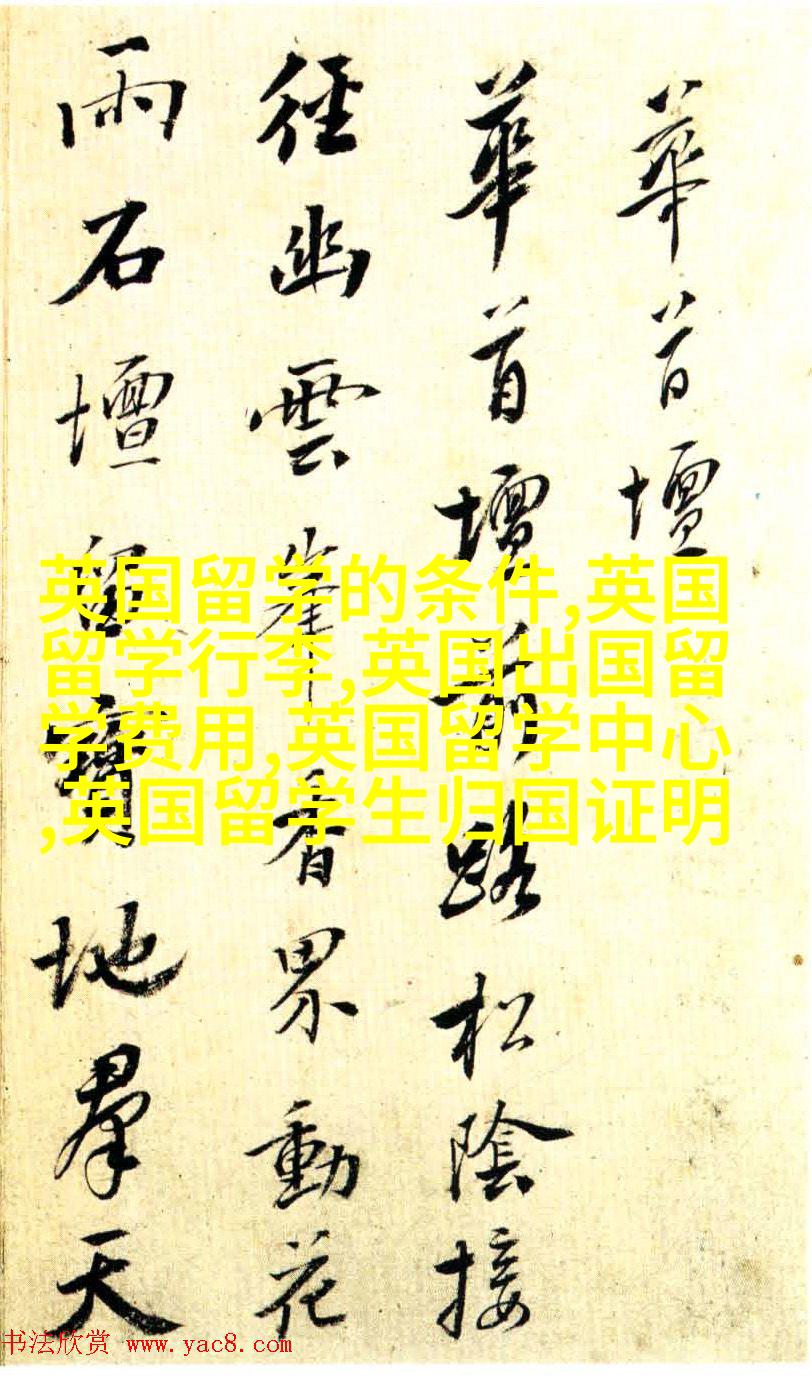 華首壇
華首壇前路松陰接
徑幽雲峯香界動花
雨石壇留寶地羣天
英国留学的条件,英国
留学行李,英国出国留
学费用,英国留学中心
,英国留学生归国证明
书法欣赏 www.yac8.com